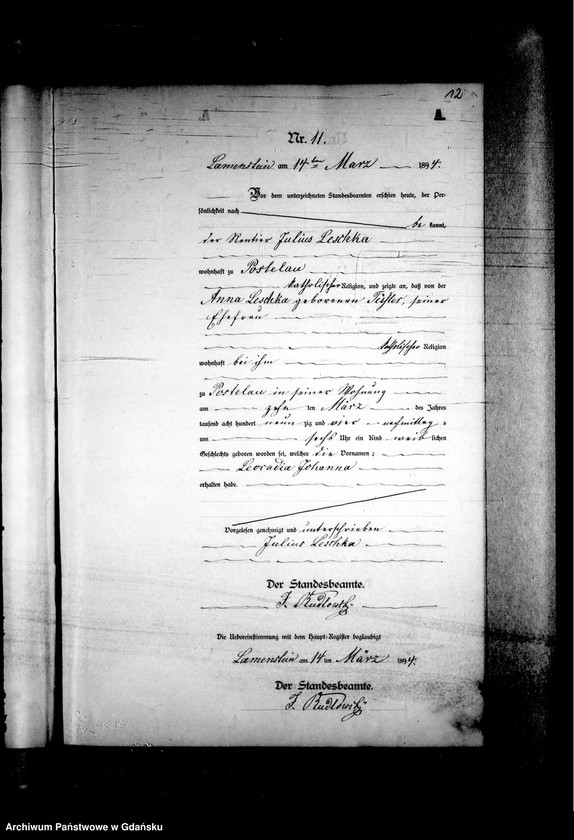 12
A.
Nr. 11.
Lamenstein am 14ten März 1894.
Vor dem unterzeichneten Standesbeamten erschien heute, der Per-
sönlichkeit nach
be kannt,
der Rentier Julius Leschka
wohnhaft zu Postelau
katholischer Religion, und zeigte an, daß von der
Anna Leschka geborenen, seiner
Ehefrau
katholischer Religion
wohnhaft bei ihm
zu Postelau in seiner Wohnung
am zehn ten März des Jahres
tausend acht hundert neun zig und vier nachmittags
um sechs Uhr ein Kind weib lichen
Geschlechts geboren worden sei, welches die Vornamen:
Leocadia Johanna
erhalten habe.
Vorgelesen genehmigt und unterschrieben
Julius Leschka
Der Standesbeamte.
Die Uebereinstimmung mit dem Haupt-Register beglaubigt
Lamenstein am 14 ten März 1894.
Der Standesbeamte.
Archiwum Państwowe w Gdańsku